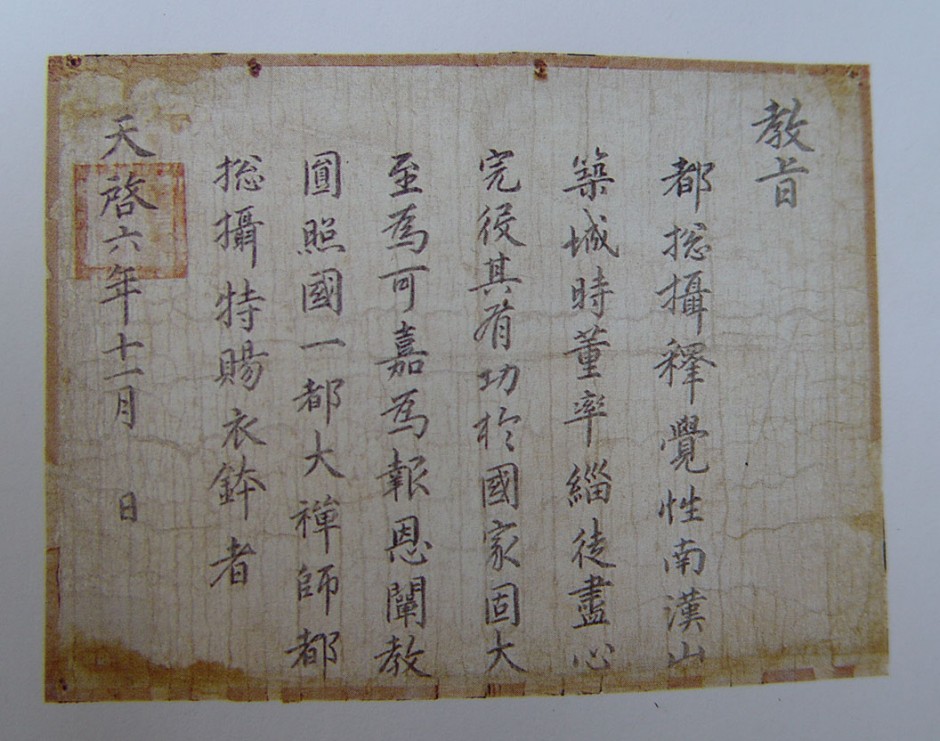 教旨
都捴攝釋覺性南漢山
築城時董率緇徒盡心
完役其有功於國家固大
至爲可嘉爲報恩闡教
圓照國一都大禅師都
捴攝特賜衣鉢者
天啓六年十一月 日